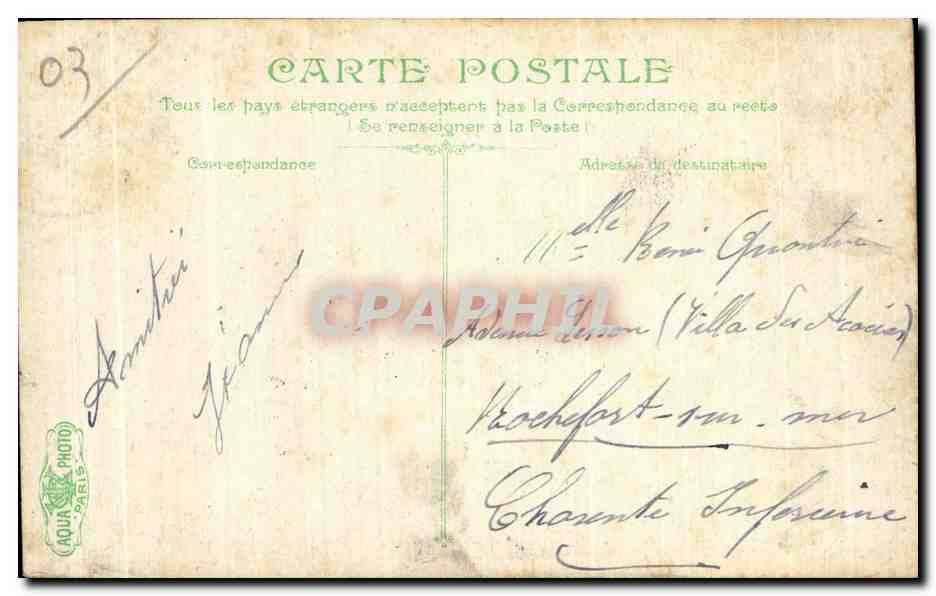 03
CARTE POSTALE
Tous les pays étrangers n'acceptent pas la Correspondance au recto
(Se renseigner à la Poste)
Correspondance
Adresse du destinataire
Amitié
Melle René Quantin
Avenue Lesson (Villa des Acacias)
Rochefort-sur-mer
Charente Inferieure
CPAPHIL
AQUA PHOTO
PARIS